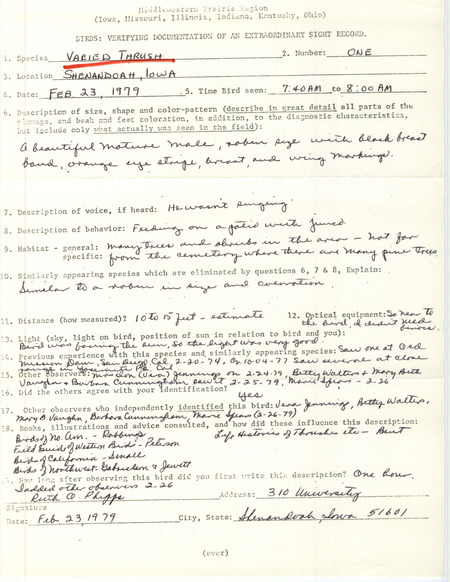 Middlewestern Prairie Region
(Iowa, Missouri, Illinois, Indiana, Kentucky, Ohio)
BIRDS: VERIFYING DOCUMENTATION OF AN EXTRAORDINARY SIGHT RECORD.
1. Species VARIED THRUSH 2. Number: ONE
3. Location SHENANDOAH, IOWA
4. Date: FEB. 23, 1979 5. Time Bird seen: 7:40 AM to 8:00 AM
6. Description of size, shape and color-pattern (describe in great detail all parts of the
plumage, and beak and feet coloration, in addition, to the diagnostic characteristics,
but include only what actually was seen in the field):
A beautiful mature male, robin size with black breast
band, orange eye stripe, breast, and wing markings.
7. Description of voice, if heard: He wasn't singing.
8. Description of behavior: Feeding on a patio with junco
9. Habitat - general: many trees and shrubs in the area - not far
specific: from the cemetery where there are many pine trees.
10. Similarly appearing species which are eliminated by questions 6, 7 & 8, Explain:
Similar to a robin in size and coloration.
11. Distance (how measured)? 10 to 15 feet - estimate 12. Optical equipment: So near to
the bird, I didn't need
13. Light (sky, light on bird, position of sun in relation to bird and you):
Bird was facing the sun, so the light was very good.
14. Previous experience with this species and similarly appearing species: Saw one at Old
Mission Dam, San Diego Cal 2-20-74, On 10-04-77 Saw several at close
range in Yosemite Pk. Cal
15. Other Observers: Mrs Clon (Vera) Jennings on 2-24-79, Betty Walters & Mary Beth
Vaughn & Barbara Cunningham, 2-25-79, Marie Spears - 2-26
16. Did the others agree with your identification? Yes
17. Other observers who independently identified this bird: Vera Jennings, Betty Walters,
Mary B Vaughn, Barbara Cunningham, Marie Spears (2-26-79)
18. Books, illustrations and advice consulted, and how did these influence this description:
Birds of No. Am. - Robbins Life Histories of Thrushes etc - Bent
Field Guide of Western Birds - Peterson
Birds of California - Small
Birds of Northwest Gabrielson & Jewett
How long after observing this bird did you first write this description? One hour.
I added other observers 2.26
Ruth A. Phipps Address: 310 University
Signature
Date: Feb 23 1979 City, State: Shenandoah, Iowa 51601
(over)